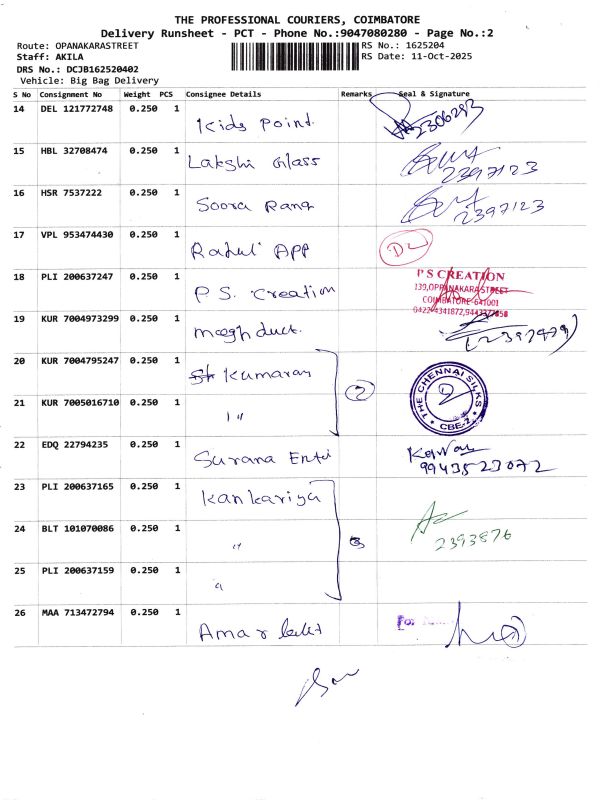 THE PROFESSIONAL COURIERS, COIMBATORE
Delivery Runsheet - PCT - Phone No.:9047080280 - Page No.:2
Route: OPANAKARASTREET
RS No.: 1625204
Staff: AKILA
RS Date: 11-Oct-2025
DRS No.: DCJB162520402
Vehicle: Big Bag Delivery
S No Consignment No Weight PCS Consignee Details Remarks Seal & Signature
14 DEL 121772748 0.250 1 Kids Point. 2306293
15 HBL 32708474 0.250 1 Lakshi Glass 2397123
16 HSR 7537222 0.250 1 Soora Rang 2397123
17 VPL 953474430 0.250 1 Rahul APP
18 PLI 200637247 0.250 1 P.S. Creation
P S CREATION
139,OPPANAKARA STREET
COIMBATORE-641001
19 KUR 7004973299 0.250 1 meghduct.
20 KUR 7004795247 0.250 1 Kumaran 2
THE CHENNAI SILKS
2
CBE-1
21 KUR 7005016710 0.250 1 "
22 EDQ 22794235 0.250 1 Surana Ente
9943523072
23 PLI 200637165 0.250 1 Kankariya
24 BLT 101070086 0.250 1 " 3 2393876
25 PLI 200637159 0.250 1 "
26 MAA 713472794 0.250 1 Amar
For